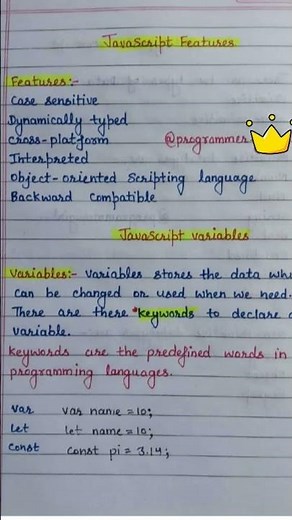 JavaScript Features
Features:-
Case sensitive
Dynamically typed
Cross-platform
@programmer
Interpreted
Object-oriented scripting language
Backward Compatible
JavaScript variables
Variables:- variables stores the data
can be changed or used when we need.
There are there *keywords to declare a
variable.
keywords are the predefined words in
programming languages.
var var name = 10;
let let name = 10;
const const pi = 3.14;